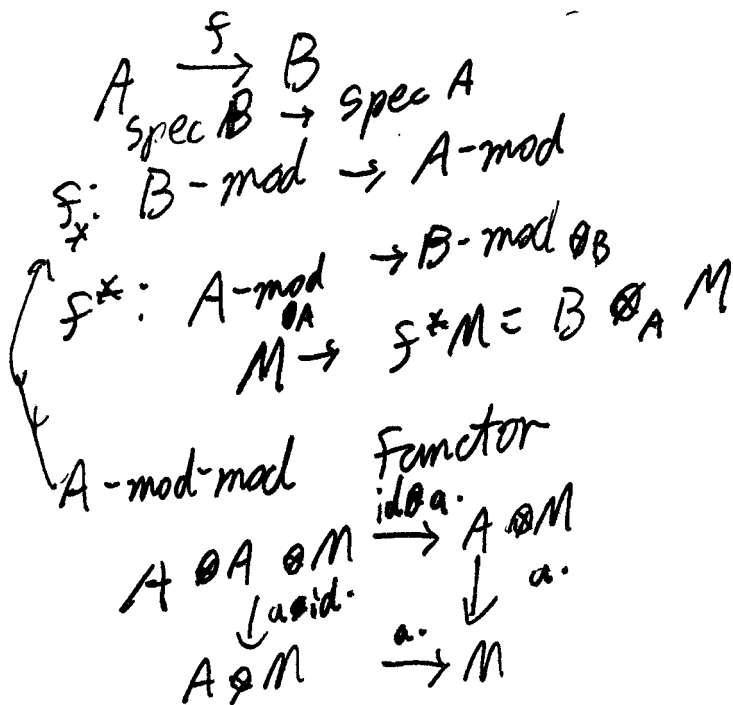 A \xrightarrow{f} B
spec B → spec A
f_*: B-mod → A-mod
f^*: A-mod ⊗_A → B-mod ⊗_B
M → f^*M = B ⊗_A M
A-mod-mod Functor
A ⊗ A ⊗ M \xrightarrow{id ⊗ a.} A ⊗ M
↓ a⊗id. ↓ a.
A ⊗ M \xrightarrow{a.} M